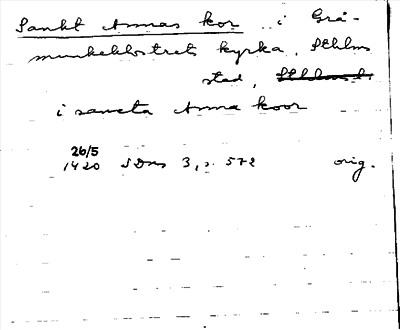 Sankt Annas kor i Grå-
munkeklostrets kyrka, Sthlms
stad, Sthlms l.
i sancta Anna koor
26/5
1420 SDns 3, s. 572 orig.